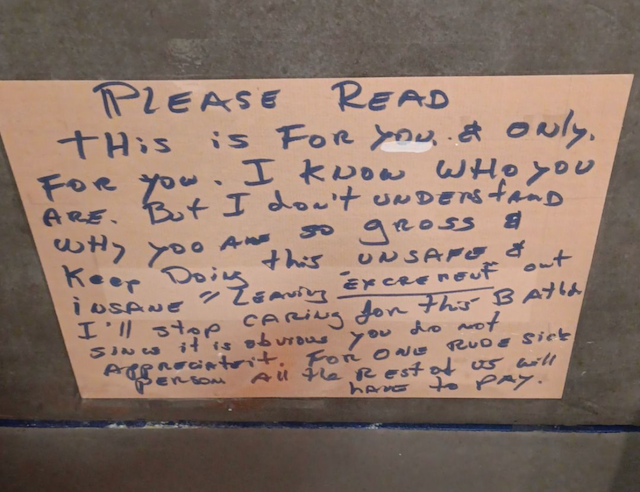 PLEASE READ
THis is FOR you & ONly.
FOR you. I KNOW WHO you
ARE. But I don't UNDERStAND
WHy you ARE so gROSS &
Keep Doing this UNSAFE &
iNSANE "LEAving EXCREMENT" out
I'll stop CARiNg for this BAtH
SINCE it is obvious you do not
APPRECiAte it. FOR ONE RUDE Sick
PERSON All the REst of US will
HAVE to PAY.